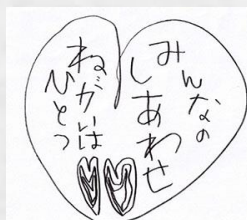 みんなの
しあわせ
ねがいは
ひとつ